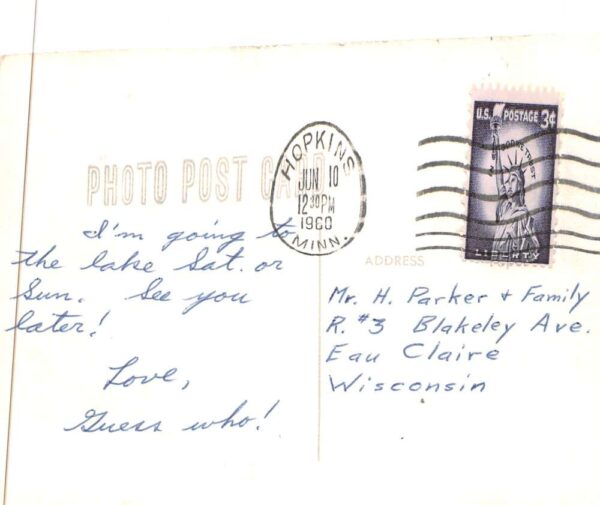 PHOTO POST CARD
HOPKINS
JUN 10
12 30 PM
1960
MINN.
U.S. POSTAGE 3¢
IN GOD WE TRUST
LIBERTY
I'm going to
the lake Sat. or
Sun. See you
later!
Love,
Guess who!
ADDRESS
Mr. H. Parker + Family
R. #3 Blakeley Ave.
Eau Claire
Wisconsin